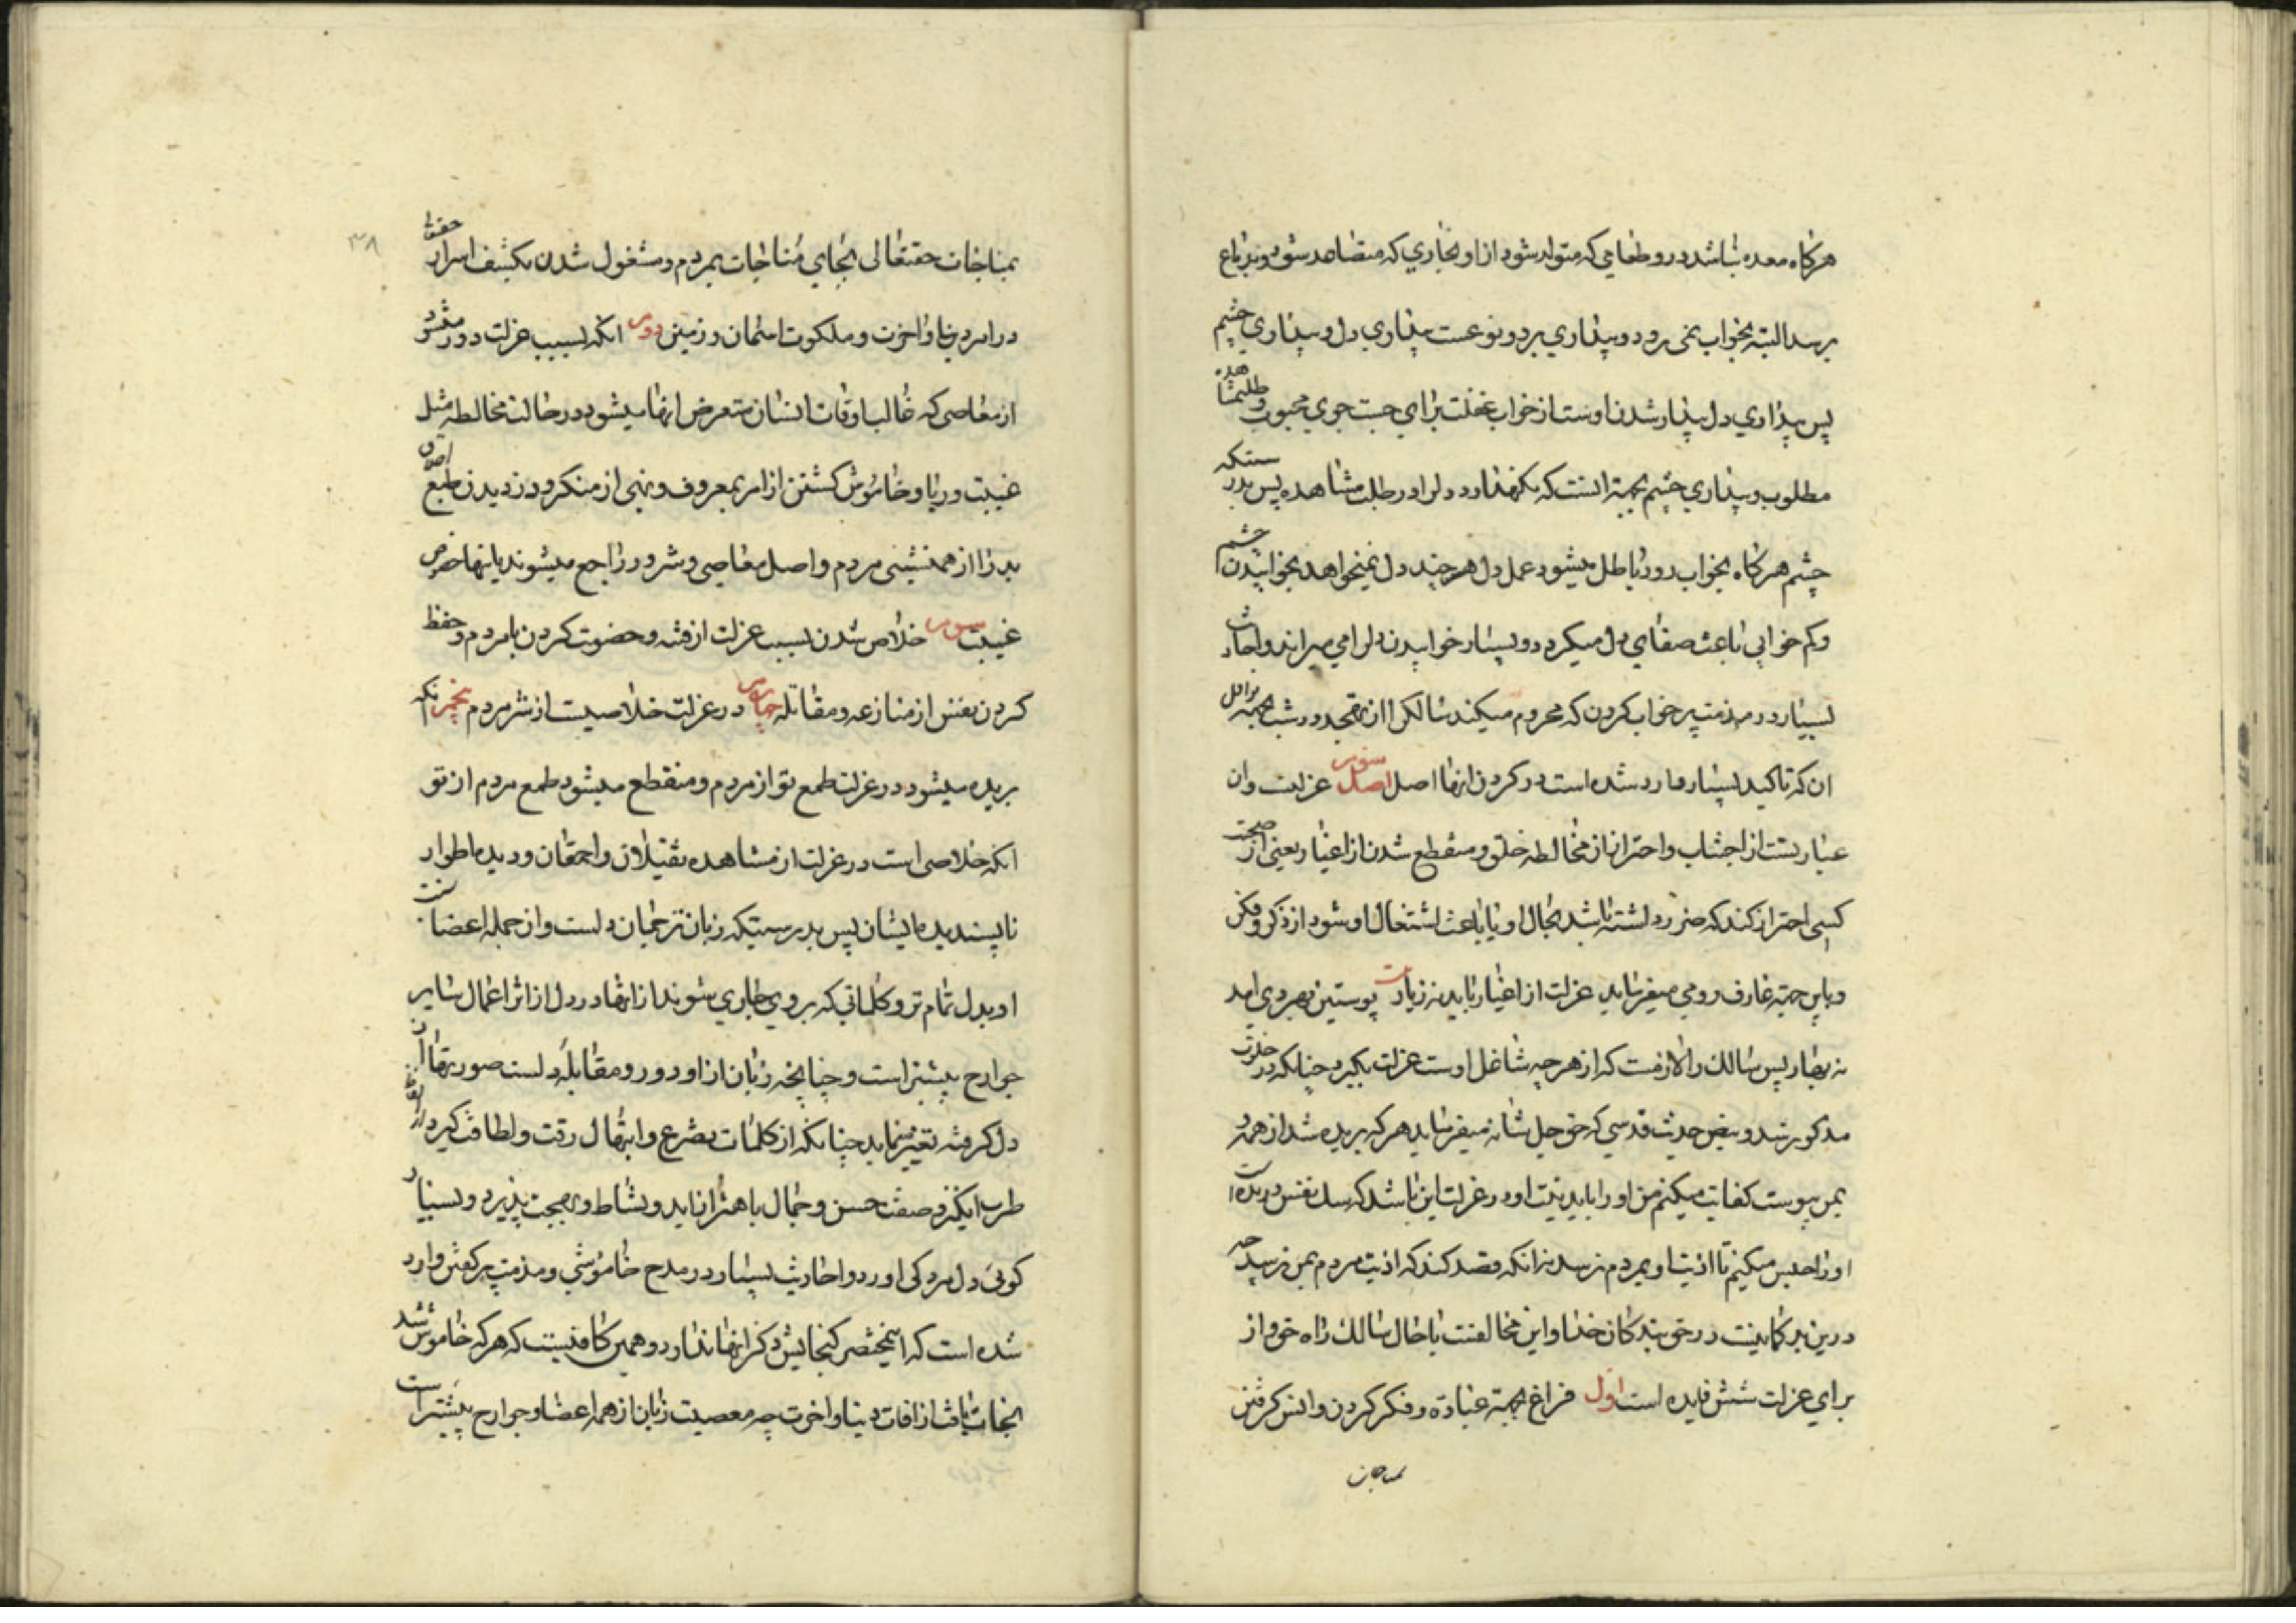 هرگاه معده باشد درو طعامی که متولد شود از او بخاری که متصاعد شود و بدماغ
برسد البته بخواب نمی رود و بیداری بر دو نوعست بیداری دل و بیداری چشم
پس بیداری دل بیدار شدن اوست از خواب غفلت برای جست جوی محبوب و طلب مشاهده
مطلوب و بیداری چشم بجهة انست که نگهدارد دل را در طلب مشاهده پس بدرستیکه
چشم هرگاه بخواب رود باطل میشود عمل دل هر چند دل نمیخواهد بخوابیدن چشم
و کم خوابی باعث صفای دل میگردد و بسیار خوابیدن دلرا می میراند و احادیث
بسیار در مذمت پر خواب کردن که محروم میکند سالک را از تهجد در شب بجهة نوافل
ان که تاکید بسیار وارد شده است در کردن انها اصل اصل سوم عزلت وان
عبارتست از اجتناب و احتراز از مخالطه خلق و منقطع شدن از اغیار یعنی از صحبت
کسی احتراز کند که ضرر داشته باشد بحال او یا باعث اشتغال او شود از ذکر و فکر
و باین جهة عارف رومی میفرماید عزلت از اغیار باید نه زیار پوستین بهر دی امد
نه بهار پس سالک را لازمست که از هر چه شاغل اوست عزلت بگیرد چنانکه در خلوت
مذکور شد و بنص حدیث قدسی که حق جل شانه میفرماید هر که بریده شد از همه و
بمن پیوست کفایت میکنم من او را باید نیت او در عزلت این باشد که سگ نفس درنده است
او را حبس میکنم تا اذیت او بمردم نرسد نه انکه قصد کند که اذیت مردم بمن نرسد چه
درین بد گمانیست در حق بندگان خدا و این مخالفت با حال سالک راه حق و از
برای عزلت شش فایده است اول فراغ بجهة عبادة و فکر کردن و انس گرفتن
بمناجات
۳۸
بمناجات حقتعالی بجای مناجات بمردم و مشغول شدن بکشف اسرار حقتعا
در امر دنیا و اخرت و ملکوت اسمان و زمین دویم انکه بسبب عزلت دور میشود
از معاصی که غالب اوقات انسان متعرض انها میشود در حالت مخالطه مثل
غیبت و ریا و خاموش گشتن از امر بمعروف و نهی از منکر و دزدیدن طبع اخلاق
بد را از همنشینی مردم و اصل معاصی و شرور راجع میشوند باینها خصوص
غیبت سویم خلاص شدن بسبب عزلت از فتنه و خصومت کردن با مردم و حفظ
کردن نفس از منازعه و مقاتله چهارم در عزلت خلاصیست از شر مردم پنجم انکه
بریده میشود در عزلت طمع تو از مردم و منقطع میشود طمع مردم از تو
انکه خلاصی است در عزلت از مشاهده ثقیلان و احمقان و دیدن اطوار
ناپسندیده ایشان پس بدرستیکه زبان ترجمان دلست و از جمله اعضا
او بدل تمام تر و کلماتی که بر وی جاری شوند از انها در دل از اثر اعمال سایر
جوارح بیشتر است و چنانچه زبان از او دور و مقابله دلست صورتها از
دل گرفته تعبیر مینماید چنانکه از کلمات تضرع و ابتهال رقت و لطافت گیرد و از الفاظ
طرب انگیز و صفت حسن و جمال باهتزاز اید و نشاط و بهجت پذیرد و بسیار
گوئی دل مردگی اورد و احادیث بسیار در مدح خاموشی و مذمت پر گفتن وارد
شده است که این مختصر گنجایش ذکر انها ندارد و همین کافیست که هر که خاموش شد
نجات یافت از افات دنیا و اخرت چه معصیت زبان از همه اعضا و جوارح بیشتر است